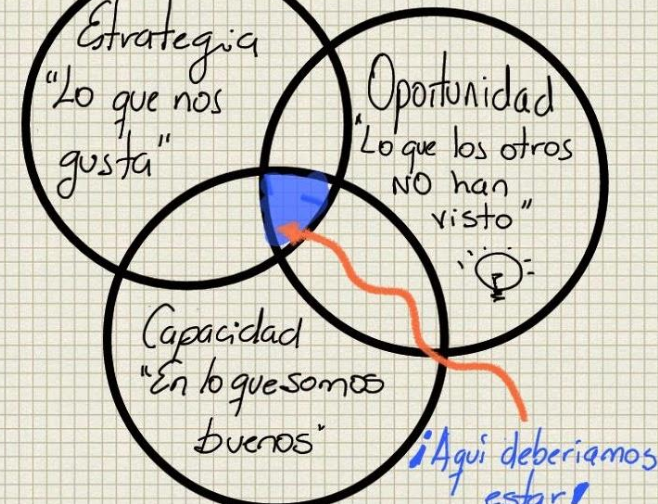 Estrategia
"Lo que nos
gusta"
Oportunidad
"Lo que los otros
NO han
visto"
Capacidad
"En lo que somos
buenos"
¡Aqui deberiamos
estar!